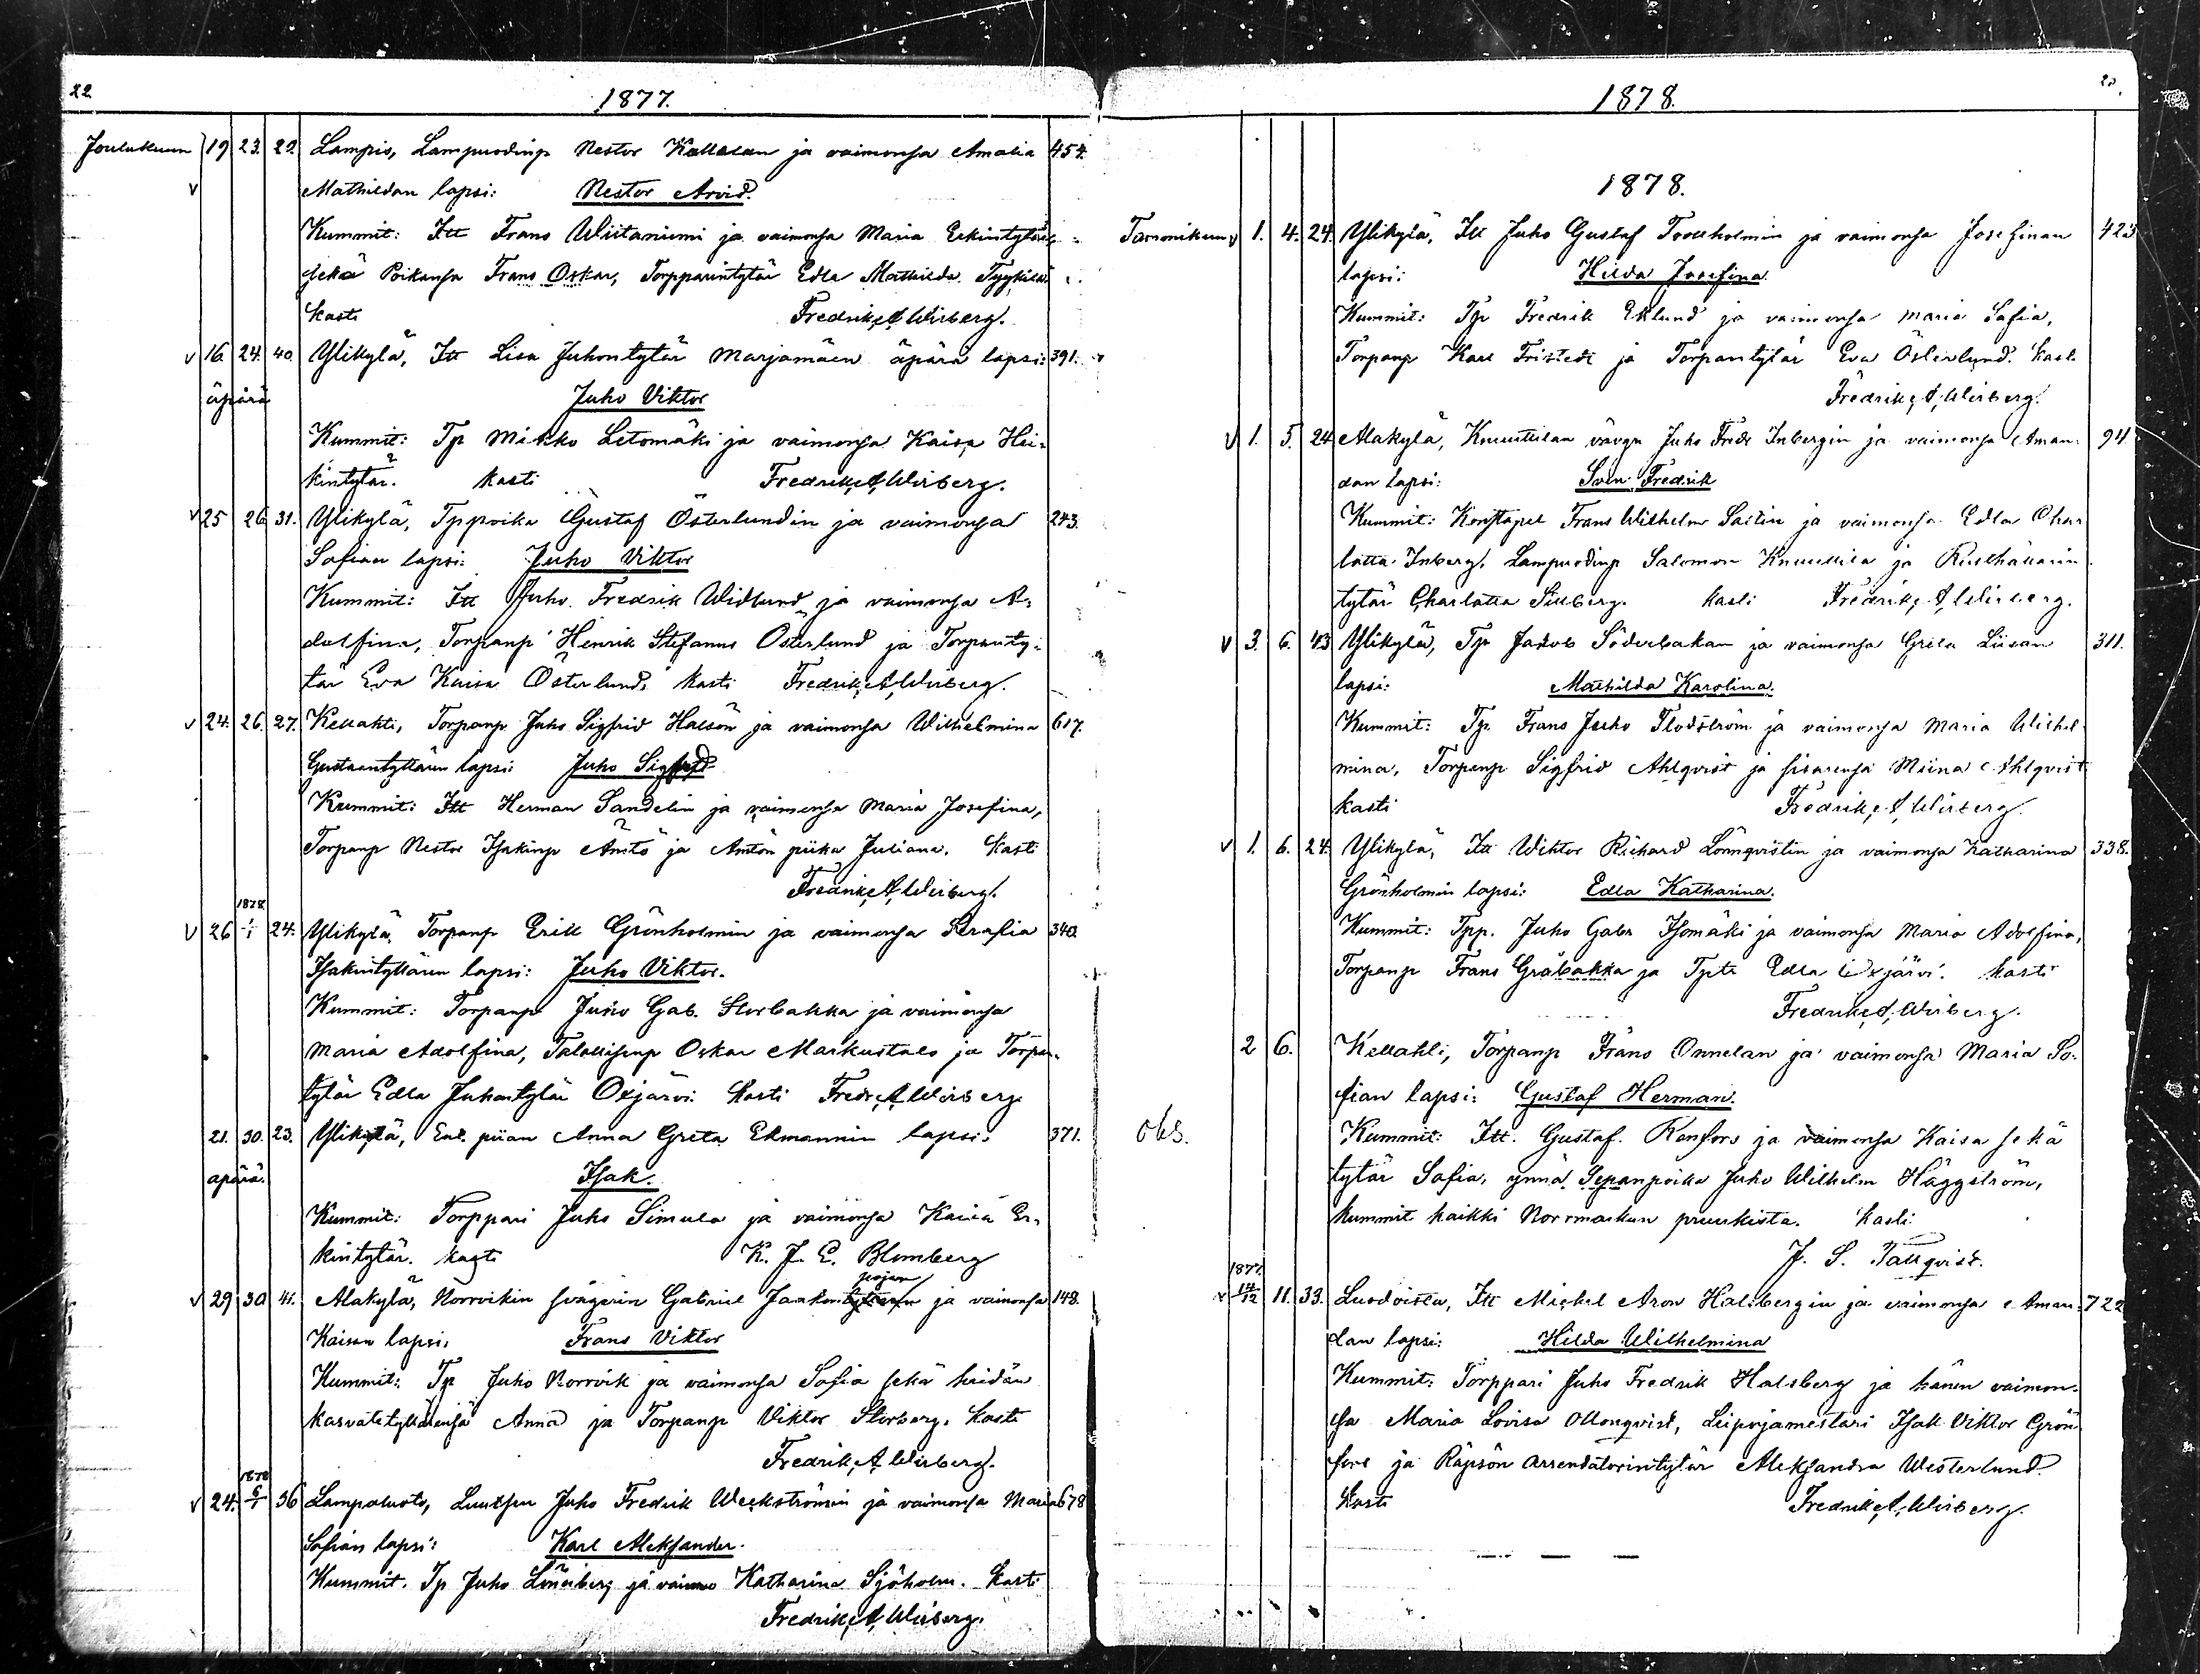 22
1877.
Joulukuun 19 23. 22. Lampis, Lampuodinp Nestor Kallelan ja vaimonsa Amalia 454.
v Mathildan lapsi: Nestor Arvid.
Kummit: Itt Frans Wiitaniemi ja vaimonsa Maria Erkintytär
sekä Poikansa Frans Oskar, Torpparintytär Edla Mathilda
kasti Fredrik A Wirberg.
v 16 24. 40. Ylikylä, Itt Lisa Juhontytär Marjamäen äpärä lapsi: 391.
äpärä Juho Viktor
Kummit: Tp Mikko Letomäki ja vaimonsa Kaisa Hei-
kintytär. kasti Fredrik A Wirberg.
v 25 26 31. Ylikylä, Tppoika Gustaf Österlundin ja vaimonsa 243.
Sofian lapsi: Juho Viktor
Kummit: Itt Juho Fredrik Widlund ja vaimonsa A-
dolfina, Torpanp Henrik Stefanus Österlund ja Torpanty-
tär Eva Kaisa Österlund. kasti Fredrik A Wirberg.
v 24. 26. 27. Kellahti, Torpanp Juho Sigfrid Halsön ja vaimonsa Wilhelmina 617.
Gustaantyttären lapsi: Juho Sigfrid
Kummit: Itt Herman Sandelin ja vaimonsa Maria Josefina,
Torpanp Nestor Isakinp Antö ja Antön piika Juliana. Kasti
Fredrik A Wirberg.
1878
v 26 1/1 24. Ylikylä, Torpanp Erik Grönholmin ja vaimonsa Serafia 340.
Isakintyttären lapsi: Juho Viktor.
Kummit: Torpanp Juho Gab. Storbakka ja vaimonsa
Maria Adolfina, Talollisenp Oskar Markustalo ja Torpan-
tytär Edla Juhantytär Oxjärvi Kasti Fredr A Wirberg
21. 30. 23. Ylikylä, Ent. piian Anna Greta Ekmannin lapsi: 371.
äpärä. Isak.
Kummit: Torppari Juho Simula ja vaimonsa Kaisa Er-
kintytär. kasti K. J. E. Blomberg
pojan
v 29 30 41. Alakylä, Norrvikin svägerin Gabriel Jaakontyttären ja vaimonsa 148.
Kaisan lapsi: Frans Viktor
Kummit: Tp Juho Norrvik ja vaimonsa Sofia sekä heidän
kasvatetyttärensä Anna ja Torpanp Viktor Storberg. kasti
Fredrik A Wirberg.
1878
v 24. 6/1 36 Lampaluoto, Luotsin Juho Fredrik Weckströmin ja vaimonsa Maria 678
Sofian lapsi: Karl Aleksander.
Kummit. Tp Juho Lönnberg ja vaimo Katharina Sjöholm. Kasti
Fredrik A Wirberg.
1878.
1878.
Tammikuun v 1. 4. 24. Ylikylä, Itt Juho Gustaf Trollholmin ja vaimonsa Josefinan 423
lapsi: Hilda Josefina
Kummit: Tp Fredrik Eklund ja vaimonsa Maria Sofia,
Torpanp Karl Fristedt ja Torpantytär Eva Österlund. Kasti
Fredrik A Wirberg.
v 1. 5. 24 Alakylä, Knuuttilan vävyn Juho Fredr Inbergin ja vaimonsa Aman- 94
dan lapsi: Sven Fredrik
Kummit: Konstapel Frans Wilhelm Sartin ja vaimonsa Edla Char-
lotta Inberg. Lampuodinp Salomon Knuuttila ja Rusthällarin
tytär Charlotta Sillberg. kasti Fredrik A Wirberg.
v 3. 6. 43 Ylikylä, Tp Jakob Söderbakan ja vaimonsa Greta Liisan 311.
lapsi: Mathilda Karolina.
Kummit: Tp. Frans Juho Flodström ja vaimonsa Maria Wilhel-
mina, Torpanp Sigfrid Ahlqvist ja sisarensa Miina Ahlqvist
kasti Fredrik A Wirberg.
v 1. 6. 24. Ylikylä, Itt Wiktor Richard Lönnqvistin ja vaimonsa Katharina 338.
Grönholmin lapsi: Edla Katharina.
Kummit: Tpp. Juho Gabr Isomäki ja vaimonsa Maria Adolfina,
Torpanp Frans Gråbakka ja Tptr Edla Oxjärvi. kasti
Fredrik A Wirberg.
2 6. Kellahti, Torpanp Frans Onnelan ja vaimonsa Maria So-
fian lapsi: Gustaf Herman.
obs. Kummit: Itt. Gustaf. Renfors ja vaimonsa Kaisa sekä
tytär Sofia, ynnä Sepänpoika Juho Wilhelm Häggström,
kummit kaikki Norrmarkun pruukista. kasti
J. S. Tallqvist.
1877
v 14/12 11. 33. Luodoista, Itt Mickel Aron Halsbergin ja vaimonsa Aman- 722
dan lapsi: Hilda Wilhelmina
Kummit: Torppari Juho Fredrik Halsberg ja hänen vaimon-
sa Maria Lovisa Ollonqvist, Leipojamestari Isak Viktor Grön-
fors ja Räpsön arrendatorintytär Aleksandra Westerlund.
Kasti Fredrik A Wirberg.